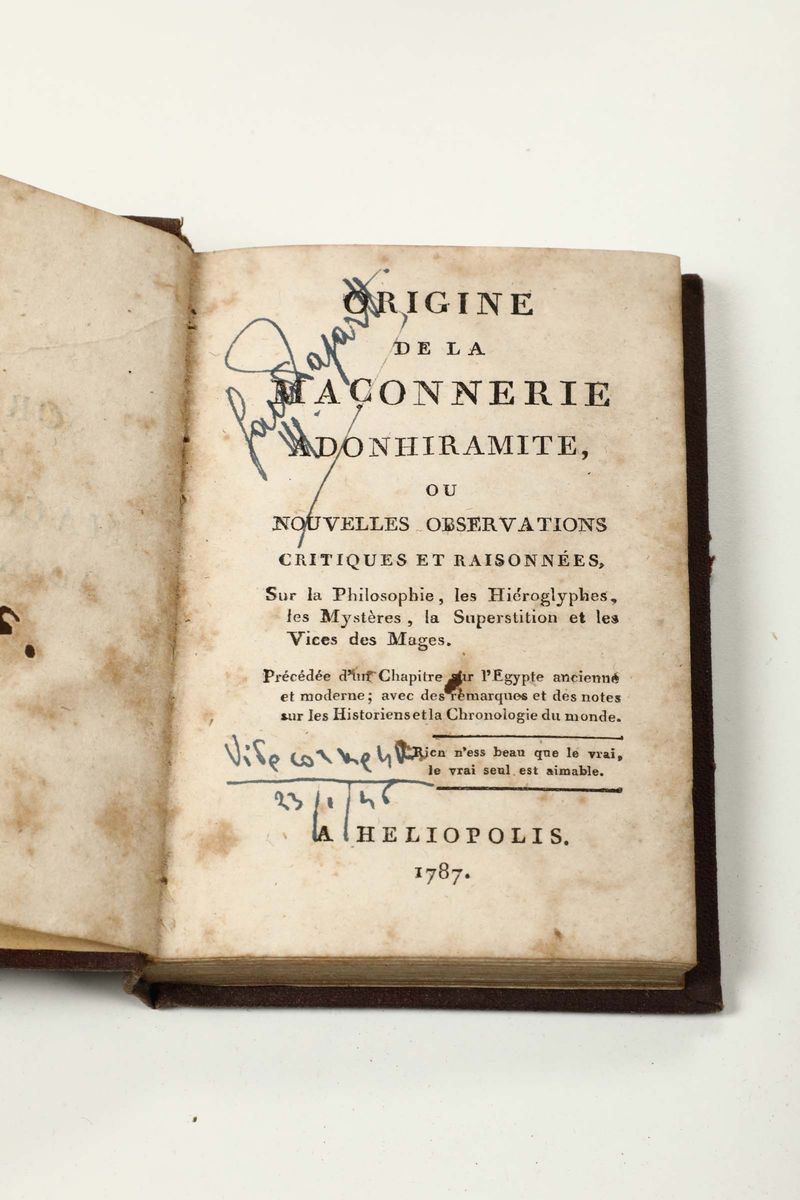 ORIGINE
DE LA
MAÇONNERIE
ADONHIRAMITE,
OU
NOUVELLES OBSERVATIONS
CRITIQUES ET RAISONNÉES,
Sur la Philosophie, les Hiéroglyphes,
les Mystères, la Superstition et les
Vices des Mages.
Précédée d'un Chapitre sur l'Egypte ancienne
et moderne; avec des remarques et des notes
sur les Historiens et la Chronologie du monde.
Rien n'ess beau que le vrai,
le vrai seul est aimable.
23/1/46
A HELIOPOLIS.
1787.